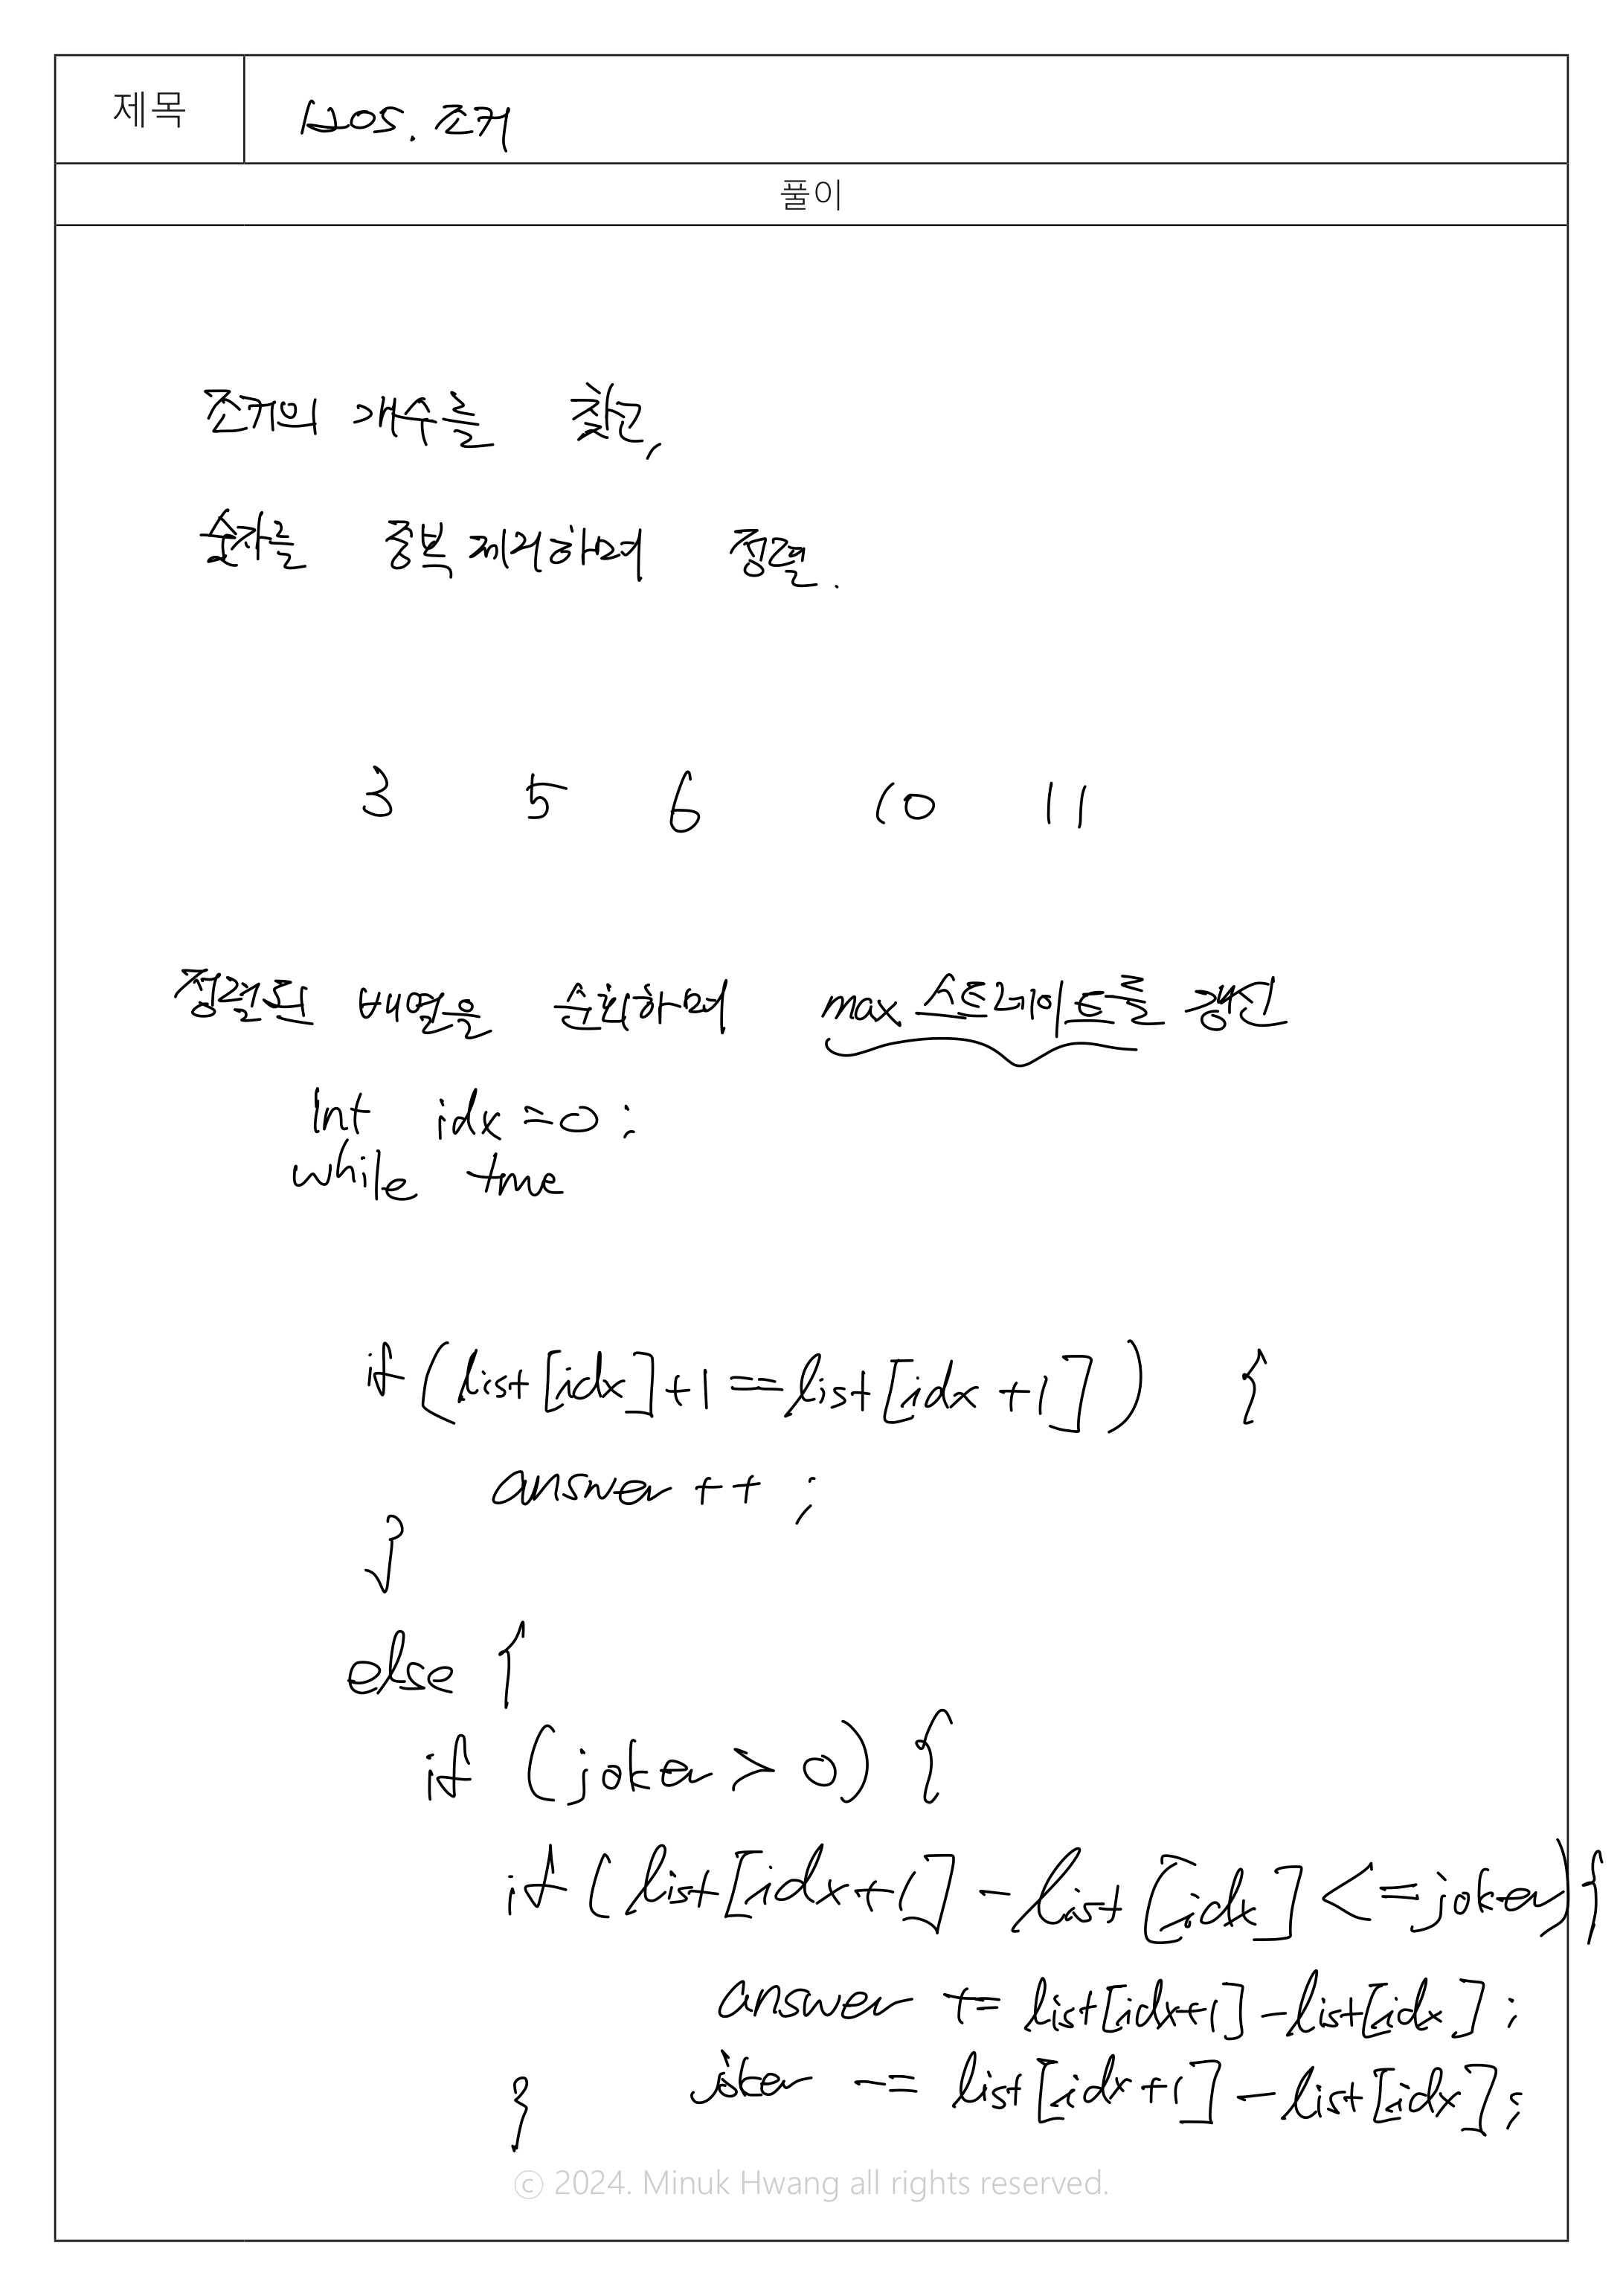 제목
205. 조커
풀이
조커의 개수를 찾은,
숫자를 중복제거하며 정렬.
3 5 6 10 11
정렬된 배열을 순회하며 max 스트레이트를 갱신
int idx=0;
while true
if(list[idx]+1==list[idx+1]) {
answer++;
}
else {
if (joker>0) {
if(list[idx+1]-list[idx]<=joker){
answer += list[idx+1]-list[idx];
joker -= list[idx+1]-list[idx];
}
ⓒ 2024. Minuk Hwang all rights reserved.